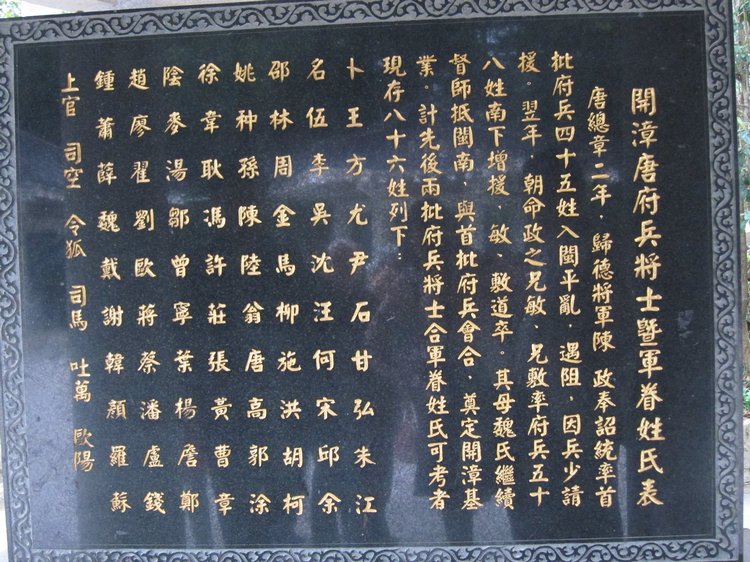 開漳唐府兵將士暨軍眷姓氏表
唐總章二年，歸德將軍陳 政奉詔統率首
批府兵四十五姓入閩平亂，遇阻，因兵少請
援。翌年，朝命政之兄敏、兄敷率府兵五十
八姓南下增援，敏、敷道卒。其母魏氏繼續
督師抵閩南，與首批府兵會合，奠定開漳基
業。計先後兩批府兵將士合軍眷姓氏可考者
現存八十六姓列下：
卜 王 方 尤 尹 石 甘 弘 朱 江
名 伍 李 吳 沈 汪 何 宋 邱 余
邵 林 周 金 馬 柳 施 洪 胡 柯
姚 种 孫 陳 陸 翁 唐 高 郭 涂
徐 韋 耿 馮 許 莊 張 黃 曹 章
陰 麥 湯 鄒 曾 寧 葉 楊 詹 鄭
趙 廖 翟 劉 歐 蔣 蔡 潘 盧 錢
鍾 蕭 薛 魏 戴 謝 韓 顏 羅 蘇
上官 司空 令狐 司馬 吐萬 歐陽